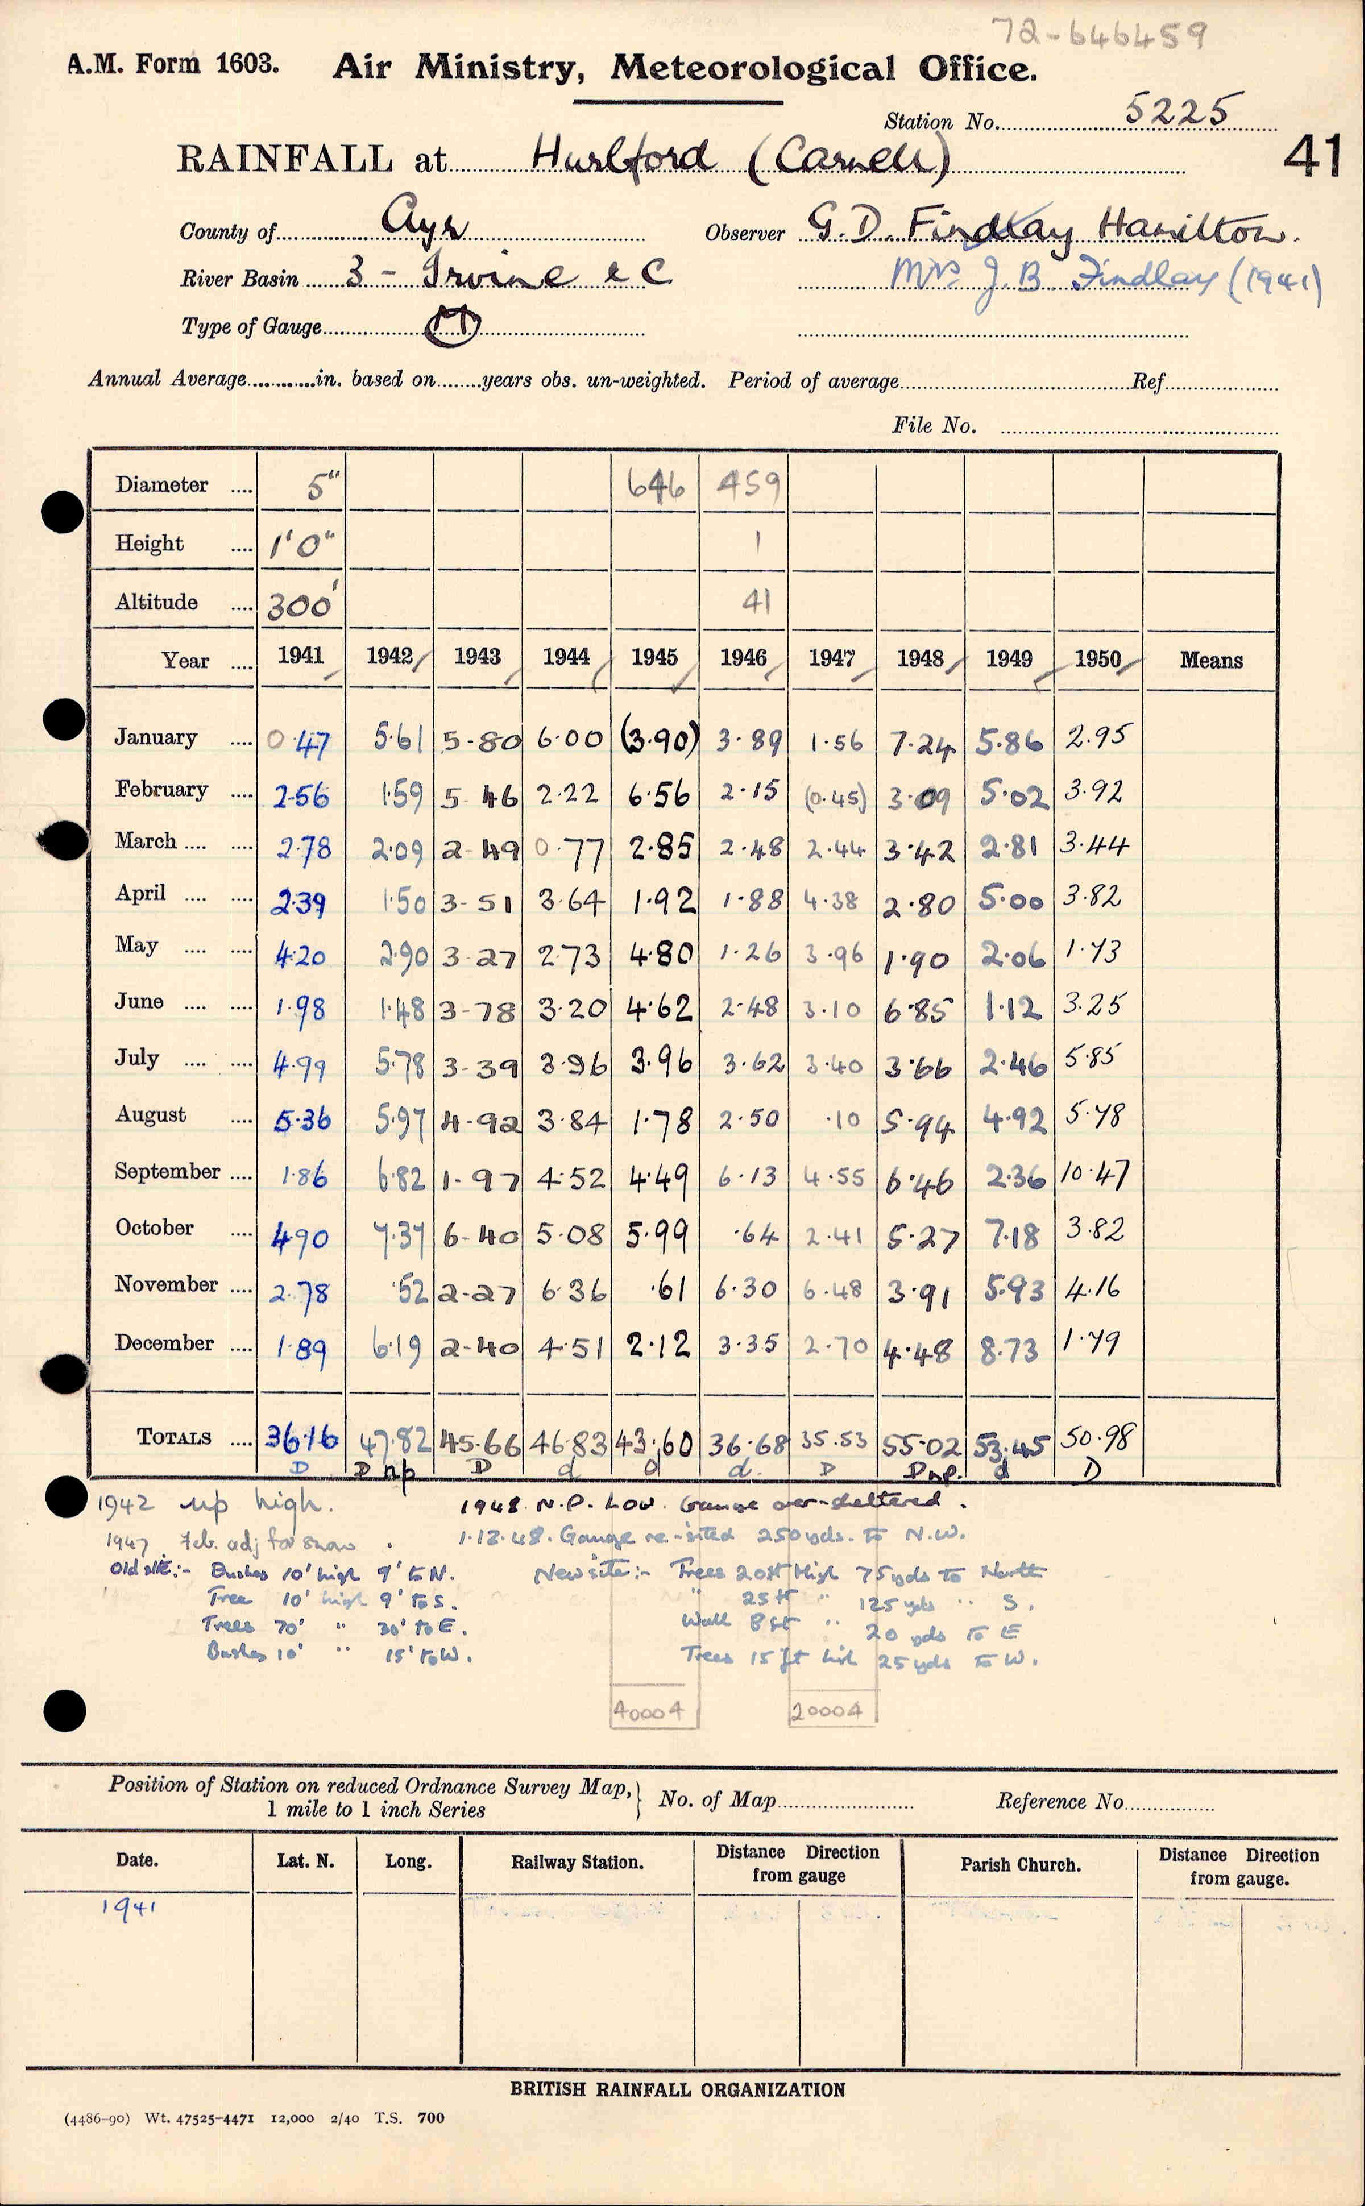 72-646459
A.M. Form 1603. Air Ministry, Meteorological Office.
Station No. 5225
RAINFALL at Hurlford (Carnell) 41
County of Ayr Observer G.D. Findlay Hamilton.
River Basin 3 - Irvine & C Mrs J.B. Findlay (1941)
Type of Gauge M
Annual Average............in. based on........years obs. un-weighted. Period of average Ref.
File No.
Diameter .... 5" 646 459
Height .... 1'0" 1
Altitude .... 300' 41
Year .... 1941 1942 1943 1944 1945 1946 1947 1948 1949 1950 Means
January .... 0.47 5.61 5.80 6.00 (3.90) 3.89 1.56 7.24 5.86 2.95
February .... 2.56 1.59 5.46 2.22 6.56 2.15 (0.45) 3.09 5.02 3.92
March .... .... 2.78 2.09 2.49 0.77 2.85 2.48 2.44 3.42 2.81 3.44
April .... .... 2.39 1.50 3.51 3.64 1.92 1.88 4.38 2.80 5.00 3.82
May .... .... 4.20 2.90 3.27 2.73 4.80 1.26 3.96 1.90 2.06 1.73
June .... .... 1.98 1.48 3.78 3.20 4.62 2.48 3.10 6.85 1.12 3.25
July .... .... 4.99 5.78 3.39 3.96 3.96 3.62 3.40 3.66 2.46 5.85
August .... 5.36 5.97 4.92 3.84 1.78 2.50 .10 5.94 4.92 5.78
September .... 1.86 6.82 1.97 4.52 4.49 6.13 4.55 6.46 2.36 10.47
October .... 4.90 7.37 6.40 5.08 5.99 .64 2.41 5.27 7.18 3.82
November .... 2.78 .52 2.27 6.36 .61 6.30 6.48 3.91 5.93 4.16
December .... 1.89 6.19 2.40 4.51 2.12 3.35 2.70 4.48 8.73 1.79
TOTALS .... 36.16 47.82 45.66 46.83 43.60 36.68 35.53 55.02 53.45 50.98
D D np D d d d. D D np. d D
1942 np high. 1948 N.P. Low. Gauge over-sheltered.
1947. Feb. adj for snow. 1.12.48. Gauge re-sited 250 yds. to N.W.
Old site:- Bushes 10' high 9' to N. New site:- Trees 20ft High 75 yds to North
Tree 10' high 9' to S. " 25ft " 125 yds " S.
Trees 70' " 30' to E. Wall 8 ft " 20 yds to E
Bushes 10' " 15' to W. Trees 15 ft high 25 yds to W.
40004 20004
Position of Station on reduced Ordnance Survey Map, 1 mile to 1 inch Series } No. of Map Reference No.
Date. Lat. N. Long. Railway Station. Distance Direction from gauge Parish Church. Distance Direction from gauge.
1941
BRITISH RAINFALL ORGANIZATION
(4486-90) Wt. 47525-4471 12,000 2/40 T.S. 700